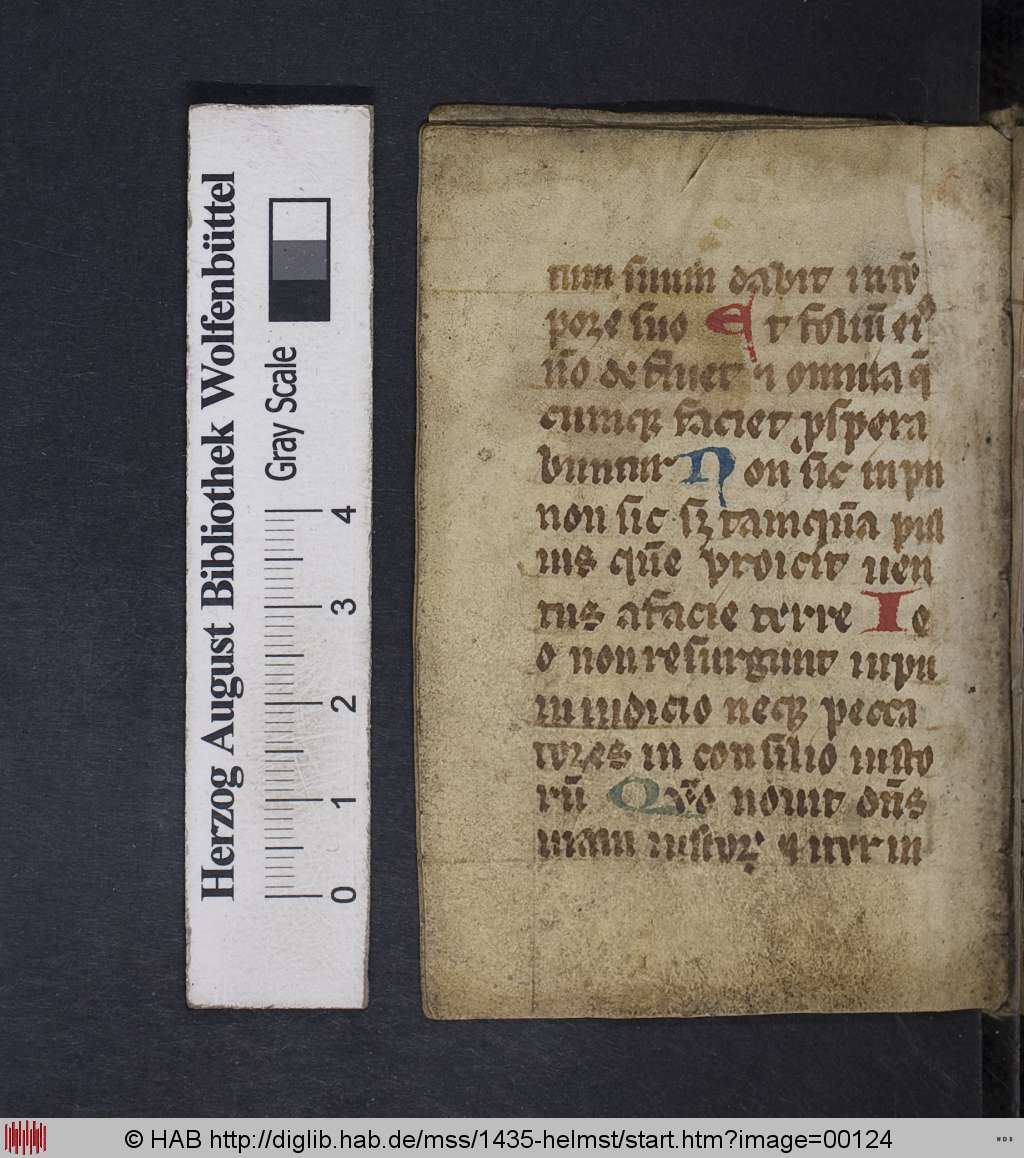 Herzog August Bibliothek Wolfenbüttel
Gray Scale
0 1 2 3 4
tum suum dabit in tē
pore suo Et foliū eiꝰ
nō defluet ⁊ omnia q̄
cumqꝫ faciet ꝓspera
buntur Non sic inpii
non sic sꝫ tamquā pul
uis quē proicit uen
tus afacie terre Ie
o non resurgunt inpii
in iudicio neqꝫ pecca
tores in consilio iusto
rū Qm̄o nouit dn̄s
uiam iustoꝝ ⁊ iter in
© HAB http://diglib.hab.de/mss/1435-helmst/start.htm?image=00124